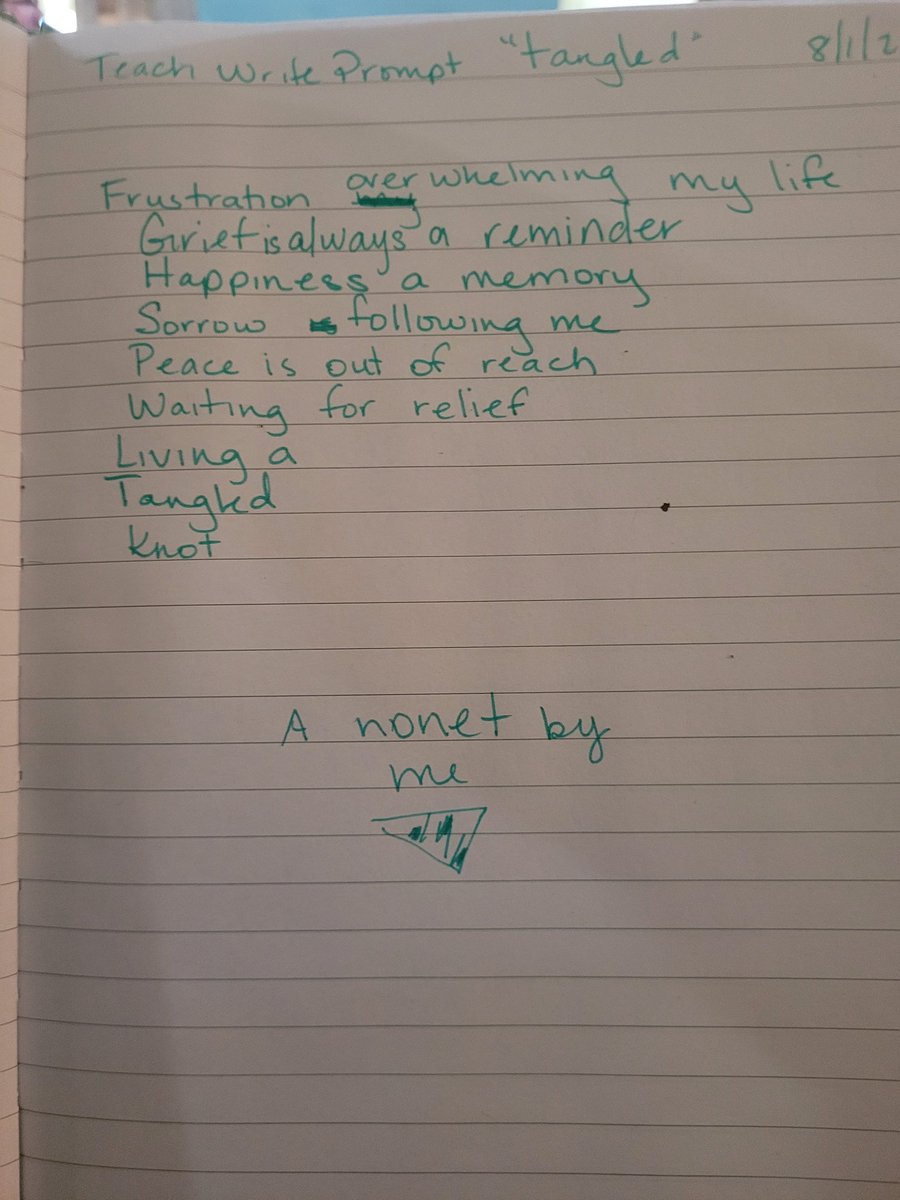 Teach Write Prompt "tangled" 8/1/2
Frustration overwhelming my life
Grief is always a reminder
Happiness a memory
Sorrow following me
Peace is out of reach
Waiting for relief
Living a
Tangled
Knot
A nonet by
me